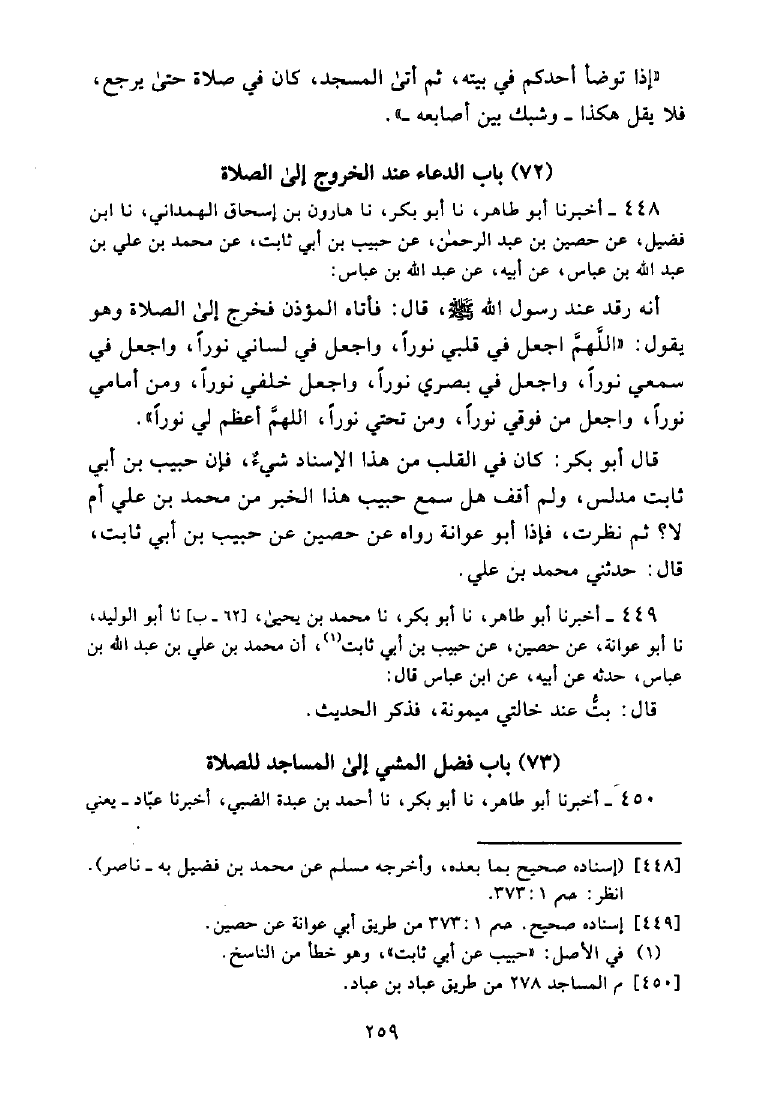 «إذا توضأ أحدكم في بيته، ثم أتىٰ المسجد، كان في صلاة حتىٰ يرجع،
فلا يقل هكذا ـ وشبك بين أصابعه ـ».
(٧٢) باب الدعاء عند الخروج إلىٰ الصلاة
٤٤٨ ـ أخبرنا أبو طاهر، نا أبو بكر، نا هارون بن إسحاق الهمداني، نا ابن
فضيل، عن حصين بن عبد الرحمٰن، عن حبيب بن أبي ثابت، عن محمد بن علي بن
عبد الله بن عباس، عن أبيه، عن عبد الله بن عباس:
أنه رقد عند رسول الله ﷺ، قال: فأتاه المؤذن فخرج إلىٰ الصلاة وهو
يقول: «اللَّهمَّ اجعل في قلبي نوراً، واجعل في لساني نوراً، واجعل في
سمعي نوراً، واجعل في بصري نوراً، واجعل خلفي نوراً، ومن أمامي
نوراً، واجعل من فوقي نوراً، ومن تحتي نوراً، اللهمَّ أعظم لي نوراً».
قال أبو بكر: كان في القلب من هذا الإسناد شيءٌ، فإن حبيب بن أبي
ثابت مدلس، ولم أقف هل سمع حبيب هذا الخبر من محمد بن علي أم
لا؟ ثم نظرت، فإذا أبو عوانة رواه عن حصين عن حبيب بن أبي ثابت،
قال: حدثني محمد بن علي.
٤٤٩ ـ أخبرنا أبو طاهر، نا أبو بكر، نا محمد بن يحيىٰ، [٦٢ ـ ب] نا أبو الوليد،
نا أبو عوانة، عن حصين، عن حبيب بن أبي ثابت(١)، أن محمد بن علي بن عبد الله بن
عباس، حدثه عن أبيه، عن ابن عباس قال:
قال: بتُّ عند خالتي ميمونة، فذكر الحديث.
(٧٣) باب فضل المشي إلىٰ المساجد للصلاة
٤٥٠ ـ أخبرنا أبو طاهر، نا أبو بكر، نا أحمد بن عبدة الضبي، أخبرنا عبّاد ـ يعني
[٤٤٨] (إسناده صحيح بما بعده، وأخرجه مسلم عن محمد بن فضيل به ـ ناصر).
انظر: حم ١: ٣٧٣.
[٤٤٩] إسناده صحيح. حم ١: ٣٧٣ من طريق أبي عوانة عن حصين.
(١) في الأصل: «حبيب عن أبي ثابت»، وهو خطأ من الناسخ.
[٤٥٠] م المساجد ٢٧٨ من طريق عباد بن عباد.
٢٥٩